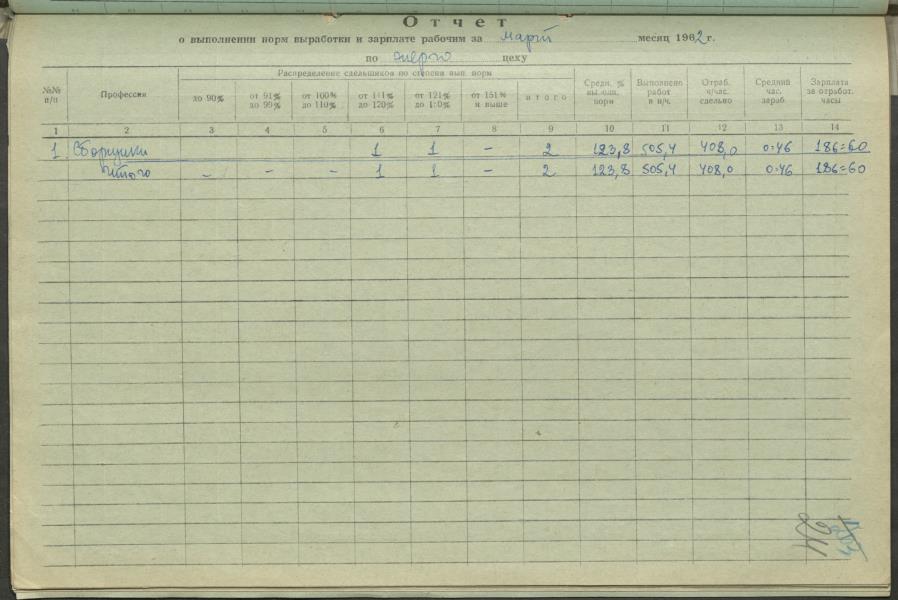 Отчет
о выполнении норм выработки и зарплате рабочим за март месяц 1962 г.
по энерго цеху
№№ п/п Профессия Распределение сдельщиков по степени вып. норм Средн. % выполн. норм Выполнено работ в н/ч. Отраб. ч/час. сдельно Средний час. зараб. Зарплата за отработ. часы
до 90% от 91% до 99% от 100% до 110% от 111% до 120% от 121% до 150% от 151% и выше итого
1 2 3 4 5 6 7 8 9 10 11 12 13 14
1 Сборщики 1 1 – 2 123,8 505,4 408,0 0-46 186=60
Итого – – – 1 1 – 2 123,8 505,4 408,0 0-46 186=60
24